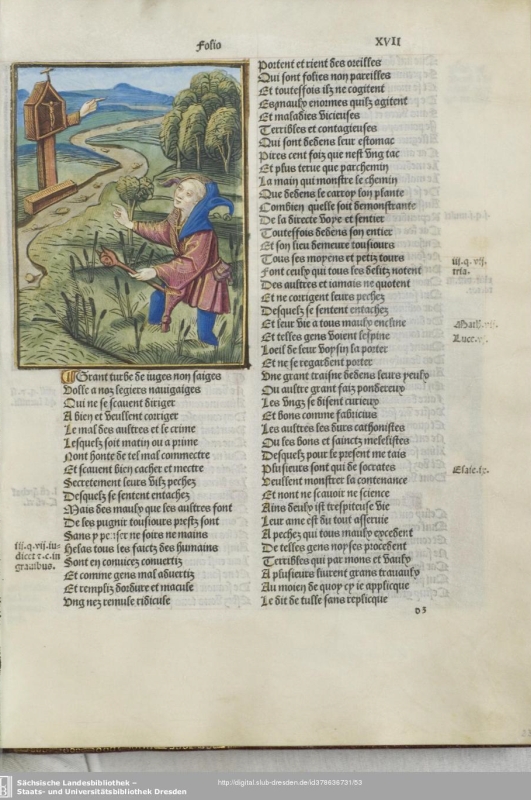 Folio
XVII
Grant turbe de iuges non saiges
Volle a noz legiers nauigaiges
Qui ne se scauent diriger
A bien et veullent corriger
Le mal des aultres et le crime
Lesquelz soit matin ou a prime
Nont honte de tel mal commectre
Et scauent bien cacher et mectre
Secretement leurs vilz pechez
Desquelz se sentent entachez
Mais des maulx que les aultres font
De les pugnir tousiours prestz sont
Sans y penser ne soirs ne mains
Helas tous les faictz des humains
Sont en conuicez conuertiz
Et comme gens mal aduertiz
Et rempliz dordure et macule
Vng nez remule ridicule
iii.q.vii.iu-
dicet z.c.in
grauibus.
Portent et rient des oreilles
Qui sont folies non pareilles
Et toutesfois ilz ne cogitent
Es maulx enormes quilz agitent
Et maladies vicieuses
Terribles et contagieuses
Qui sont dedens leur estomac
Pires cent foiz que nest vng tac
Et plus terue que parchemin
La main qui monstre le chemin
Que dedens le carrop lon plante
Combien quelle soit demonstrante
De la directe voye et sentier
Toutesfois dedens son entier
Et son lieu demeure tousiours
Tous ses moyens et petiz tours
Font ceulx qui tous les delitz notent
Des aultres et iamais ne quotent
Et ne corrigent leurs pechez
Desquelz se sentent entachez
Et leur vie a tous maulx encline
Et telles gens voient lespine
Loeil de leur voysin la porter
Et ne se regardent porter
Vne grant traisne dedens leurs yeulx
Ou aultre grant faiz pondereux
Les vngz se disent curieux
Et bons comme fabricius
Les aultres les durs cathonistes
Ou les bons et sainctz melelistes
Desquelz pour le present me tais
Plusieurs sont qui de socrates
Veullent monstrer la contenance
Et nont ne scauoir ne science
Ains deulx ist trespiteuse vie
Leur ame est du tout asseruie
A pechez qui tous maulx excedent
De telles gens noyses procedent
Terribles qui par mons et vaulx
A plusieurs liurent grans trauaulx
Au moien de quoy cy ie applicque
Le dit de tulle sans replicque
iii.q.vii.
tria.
Math.vii.
Luce.vi.
Esaie.ix.
Sächsische Landesbibliothek –
Staats- und Universitätsbibliothek Dresden
http://digital.slub-dresden.de/id378636731/53